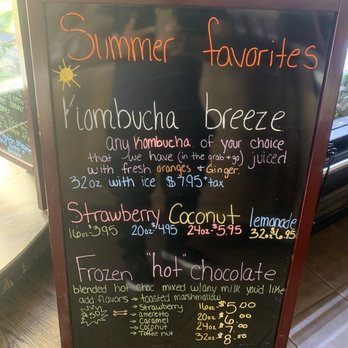 Summer favorites
Kombucha breeze
any Kombucha of your choice
that we have (in the grab + go) juiced
with fresh oranges & Ginger.
32oz with ice $7.95 + tax
Strawberry Coconut lemonade
16oz $3.95 20oz $4.95 24oz $5.95 32oz $6.95
Frozen "hot" chocolate
blended hot choc mixed w/any milk you'd like
add flavors → toasted marshmallow
→ Strawberry 16oz → $5.00
→ ameretto 20oz → 6.00
→ caramel 24oz → $7.00
→ coconut 32oz → 8.00
→ Toffee nut